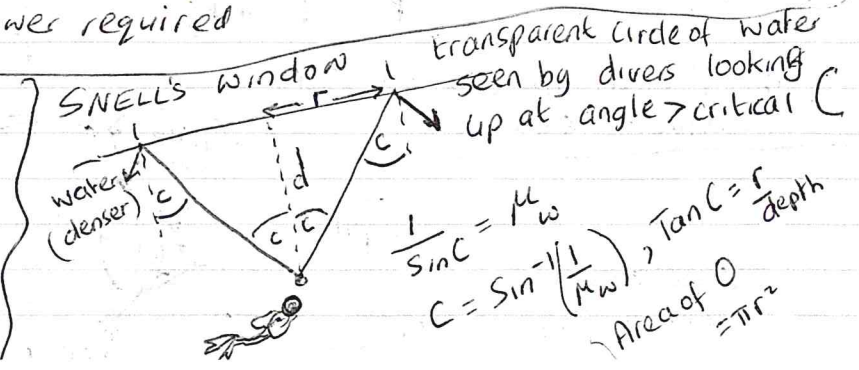 wer required
SNELL'S WINDOW
transparent circle of water
seen by divers looking
up at angle > critical C
r
d
c
c
c c
water
(denser)
1/SinC = μw
C = Sin⁻¹(1/μw), Tan C = r/depth
Area of O
= πr²